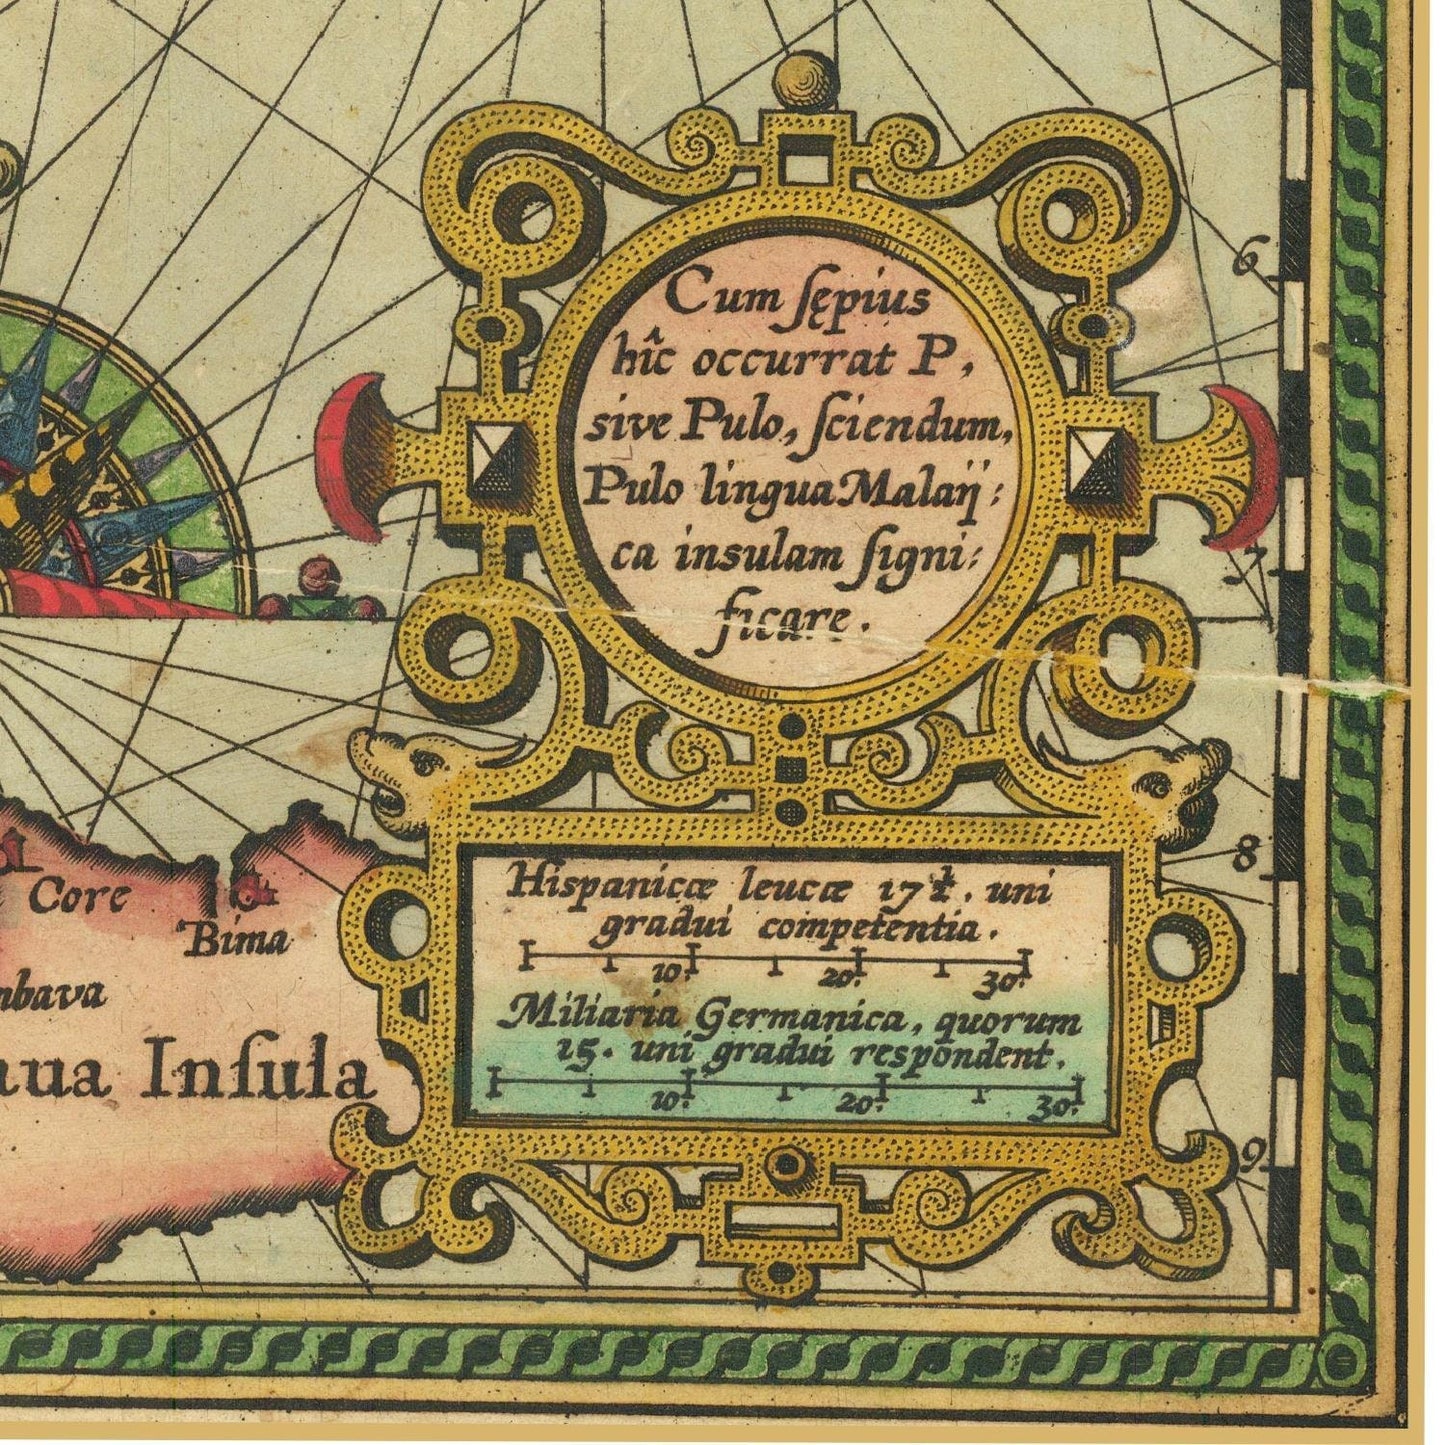 Cum ſępius
hîc occurrat P,
sive Pulo, ſciendum,
Pulo lingua Malaij:
ca insulam ſigni:
ficare.
6
7
8
9
Core
Bima
Inſula
Hispanicæ leucæ 17½. uni
gradui competentia.
10. 20. 30.
Miliaria Germanica, quorum
15. uni gradui respondent.
10. 20. 30.